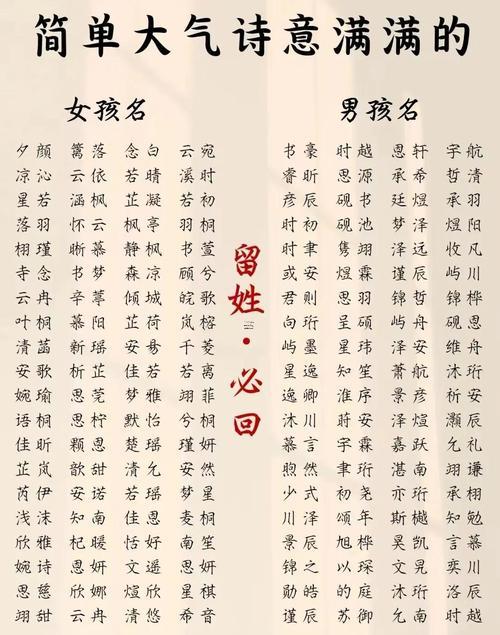 简单大气诗意满满的
女孩名 男孩名
夕颜 篱落 念白 云宛 书豪 时越 思轩 宇航
凉沁 云依 若晴 溪时 睿昕 思源 承希 哲清
星若 涵枫 芷凝 若初 彦辰 砚书 廷煜 羽川
落羽 怀云 枫亭 羽桐 时初 砚池 梦泽 煜阳
栩瑾 晰慕 静枫 书萱 时聿 隽翊 泽远 收凡
寺念 书梦 森凉 顾兮 或安 煜霖 谨辰 屿川
云冉 辛葶 倾城 皖歌 君则 思羽 锦哲 锦桦
叶桐 慕阳 芷荷 岚榕 向珩 呈硕 屿舟 砚恩
清菡 新瑶 安易 千菱 屿墨 星玮 泽安 维舟
安歌 析芷 佳若 若离 星逸 知笙 萧航 沐析
婉瑜 思莞 梦雅 翊菲 逸卿 淮序 景彦 祈安
语桐 思柠 默怡 兮桐 沐川 蒋安 泽煊 灏辰
佳昕 颗恩 楚瑶 瑾妍 慕言 宇霖 嘉跃 允礼
芷岚 歆甜 清允 安然 煦然 聿珩 湛南 翊谦
芮伊 安诺 若瑶 梦星 少式 初尧 亦珩 承栩
浅沫 知南 佳恩 麦桐 川泽 颂年 斯樾 知勉
欣雅 杞暖 怡好 南笙 景辰 旭桦 昊凯 言慕
婉诗 思妍 文遥 思妍 锦之
思慈 欣娜 煊欣 星祺
翊甜 云冉 清悠 希音
留姓·必回